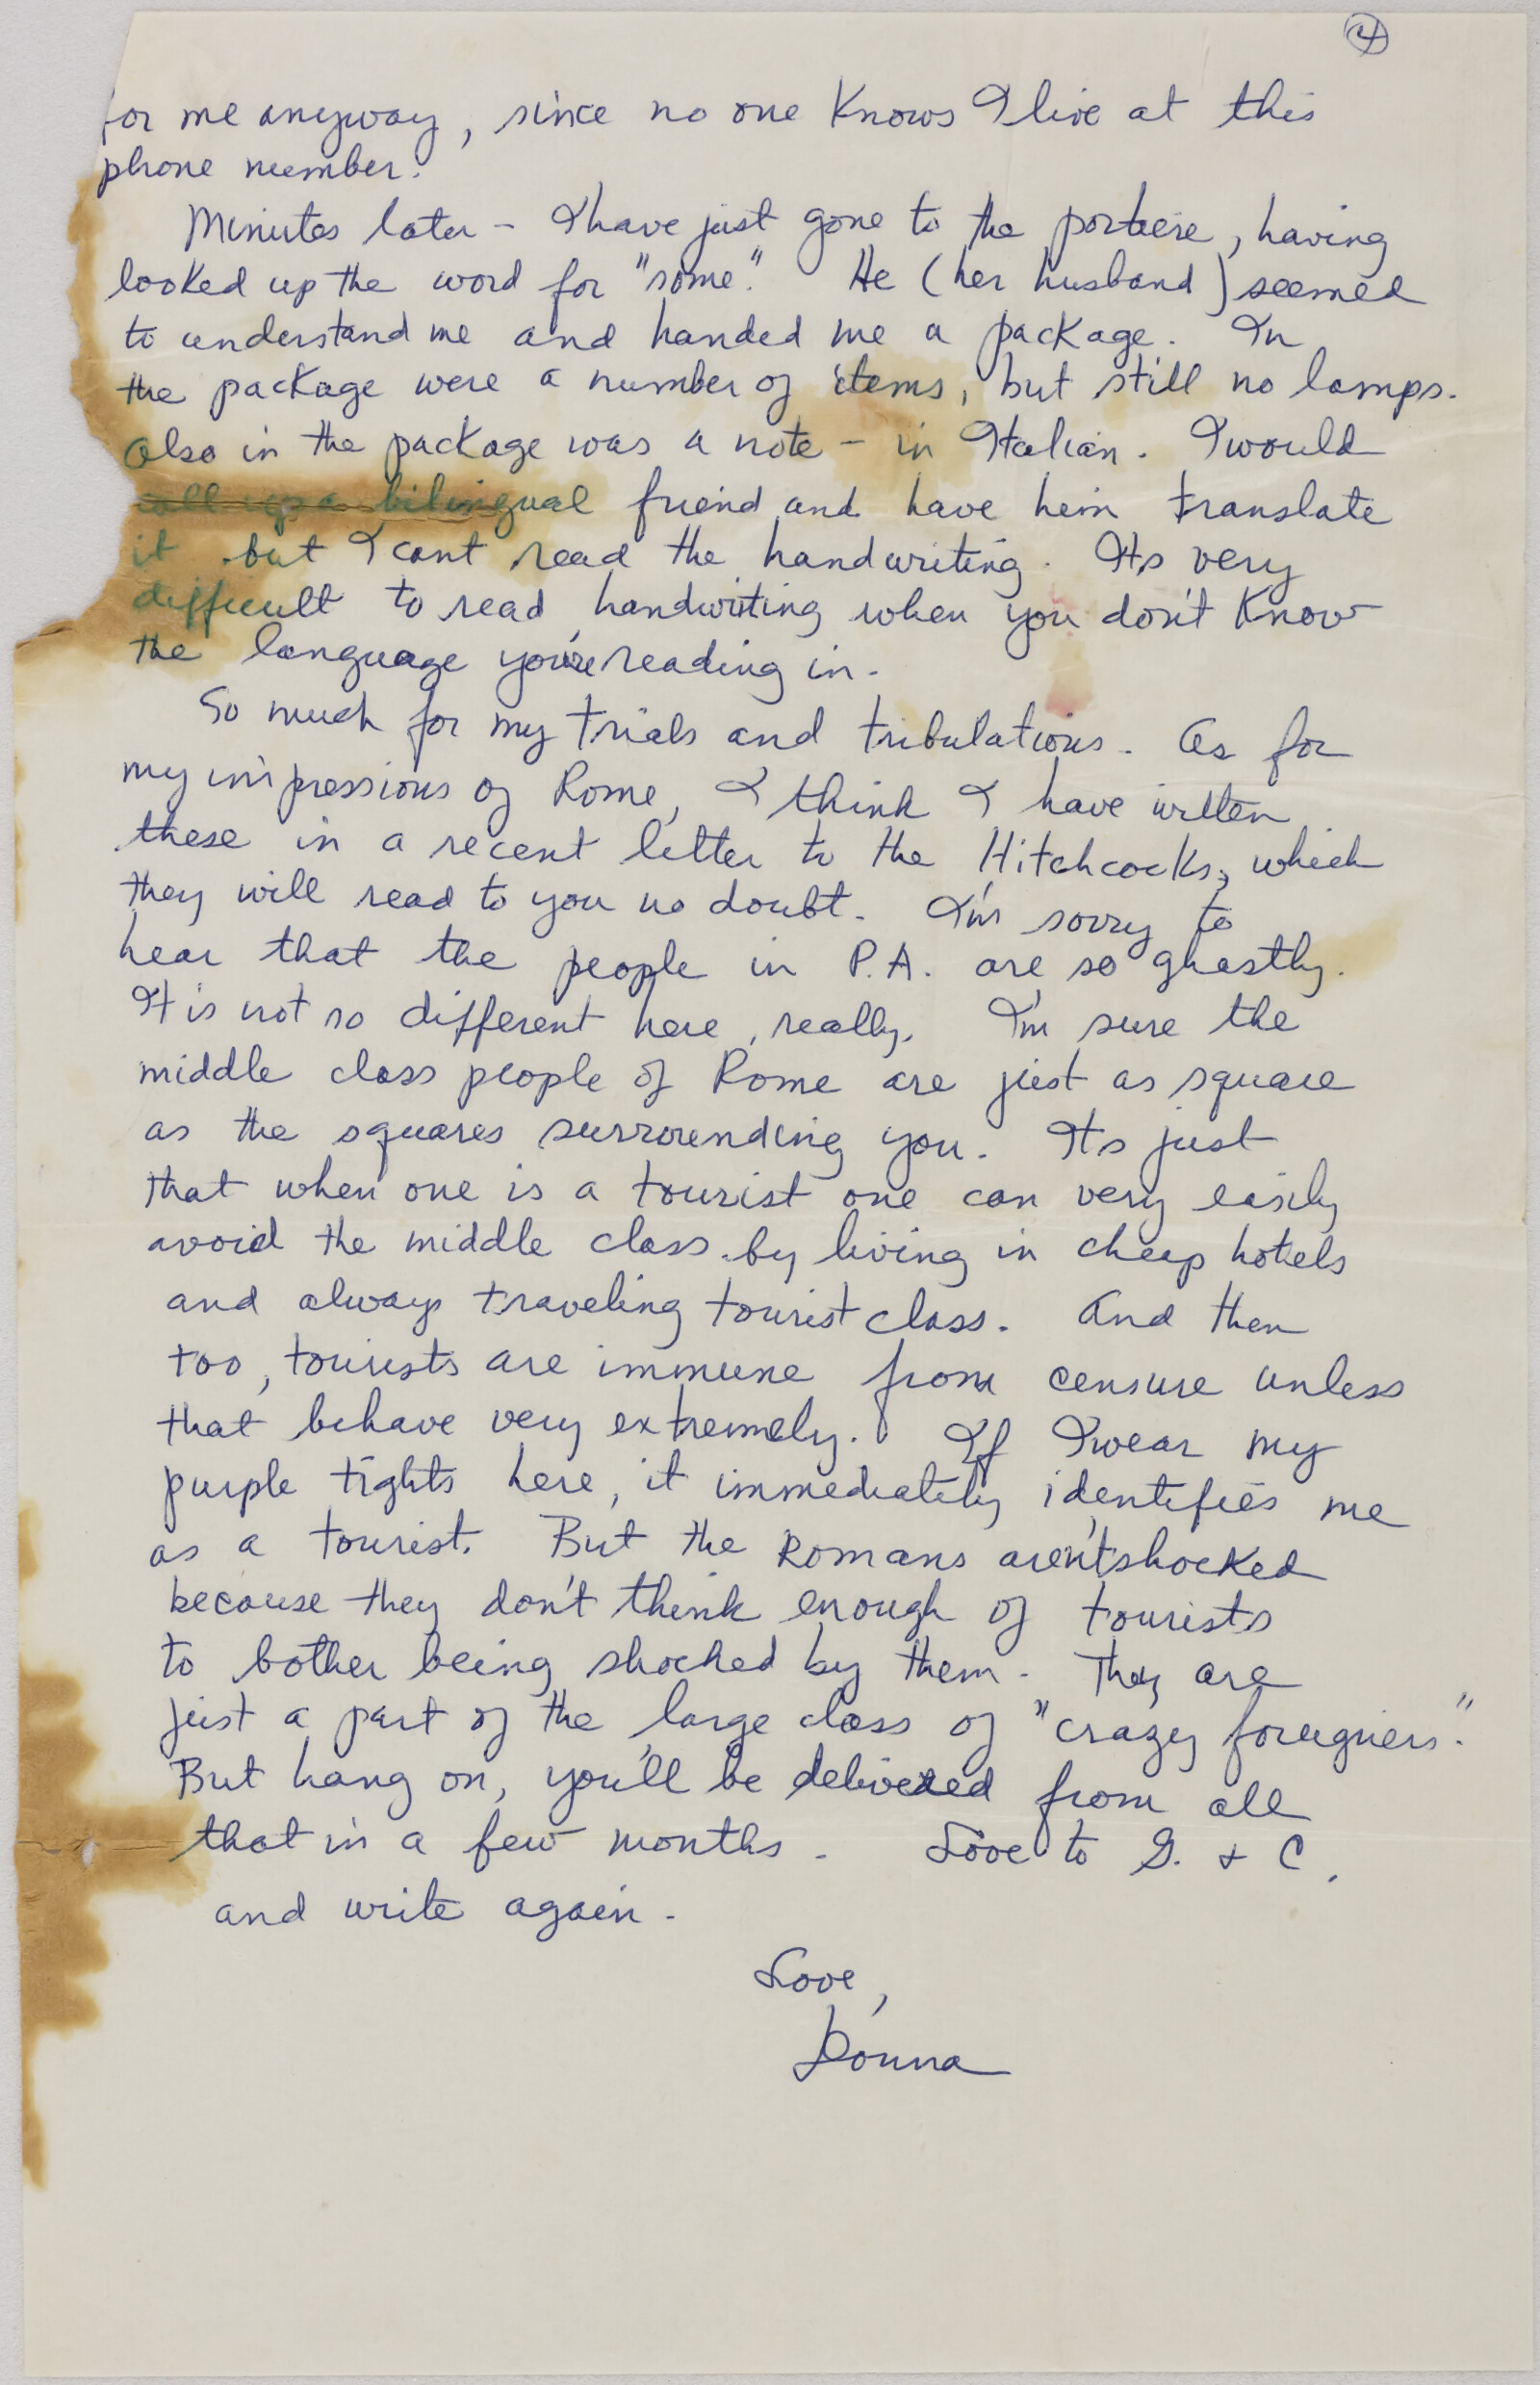 4
for me anyway, since no one knows I live at this
phone number.
Minutes later - I have just gone to the portiere, having
looked up the word for "some." He (her husband) seemed
to understand me and handed me a package. In
the package were a number of items, but still no lamps.
Also in the package was a note - in Italian. I would
call up a bilingual friend and have him translate
it but I cant read the handwriting. Its very
difficult to read handwriting when you don't know
the language you're reading in.
So much for my trials and tribulations. As for
my impressions of Rome, I think I have written
these in a recent letter to the Hitchcocks, which
they will read to you no doubt. I'm sorry to
hear that the people in P.A. are so ghastly.
It is not so different here, really. I'm sure the
middle class people of Rome are just as square
as the squares surrounding you. Its just
that when one is a tourist one can very easily
avoid the middle class by living in cheap hotels
and always traveling tourist class. And then
too, tourists are immune from censure unless
that behave very extremely. If I wear my
purple tights here, it immediately identifies me
as a tourist. But the Romans aren't shocked
because they don't think enough of tourists
to bother being shocked by them. They are
just a part of the large class of "crazy foreigners".
But hang on, you'll be delivered from all
that in a few months. Love to G. + C.
and write again.
Love,
Donna